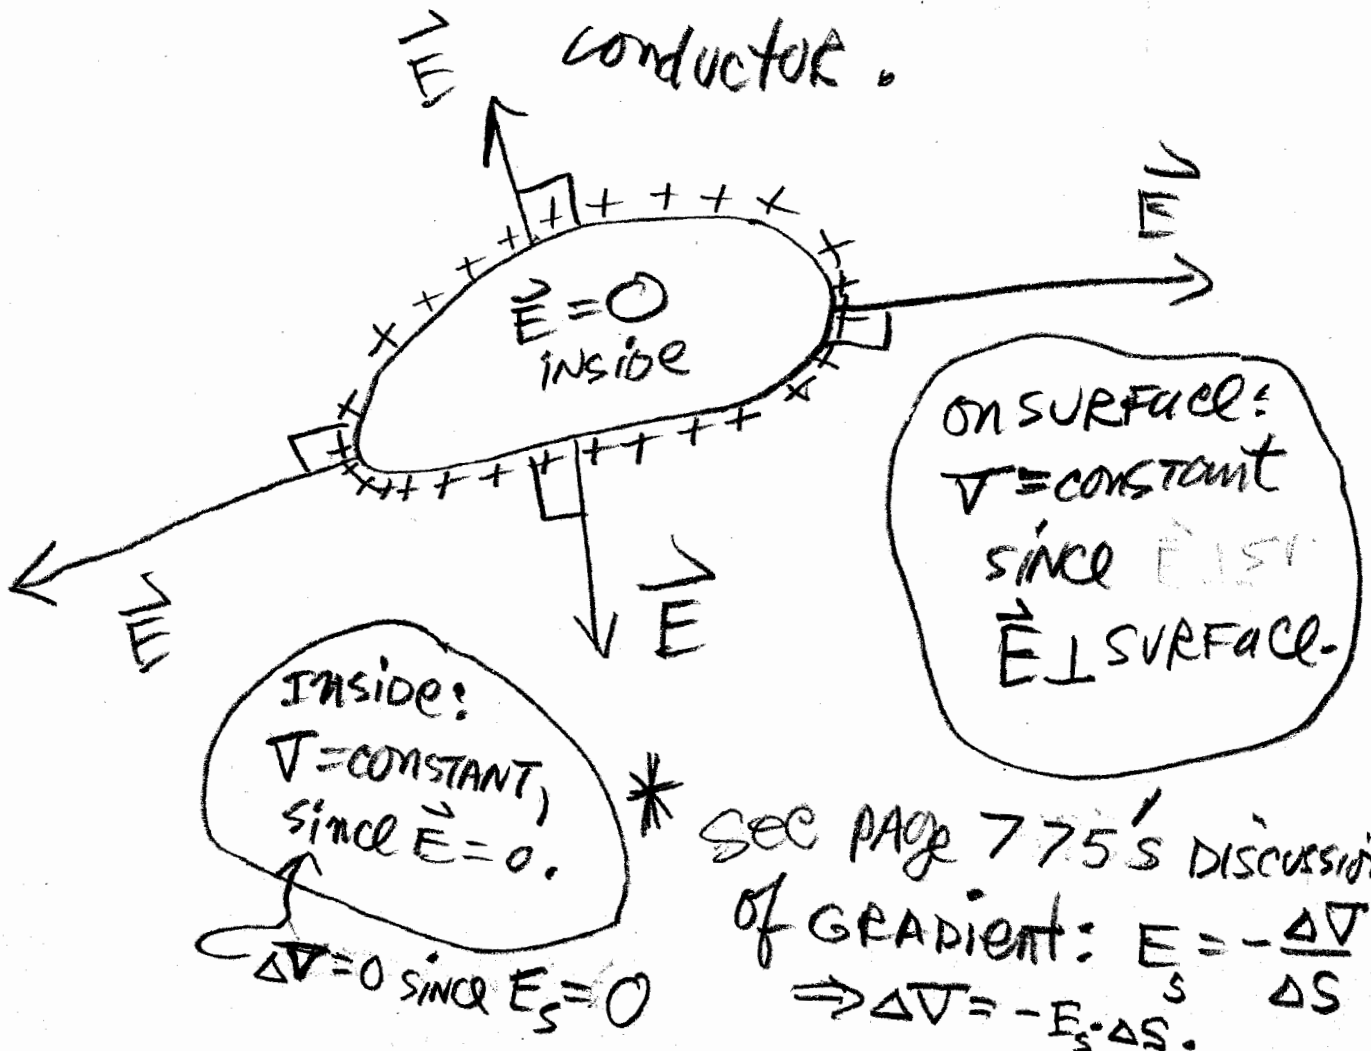 conductor.
E⃗
E⃗
E⃗ = 0
inside
on surface:
V = constant
since
E⃗ ⊥ surface.
E⃗
E⃗
Inside:
V = constant,
since E⃗ = 0.
ΔV = 0 since E_s = 0
* see page 775's Discussion
of Gradient: E_s = -ΔV/ΔS
⇒ ΔV = -E_s·ΔS.